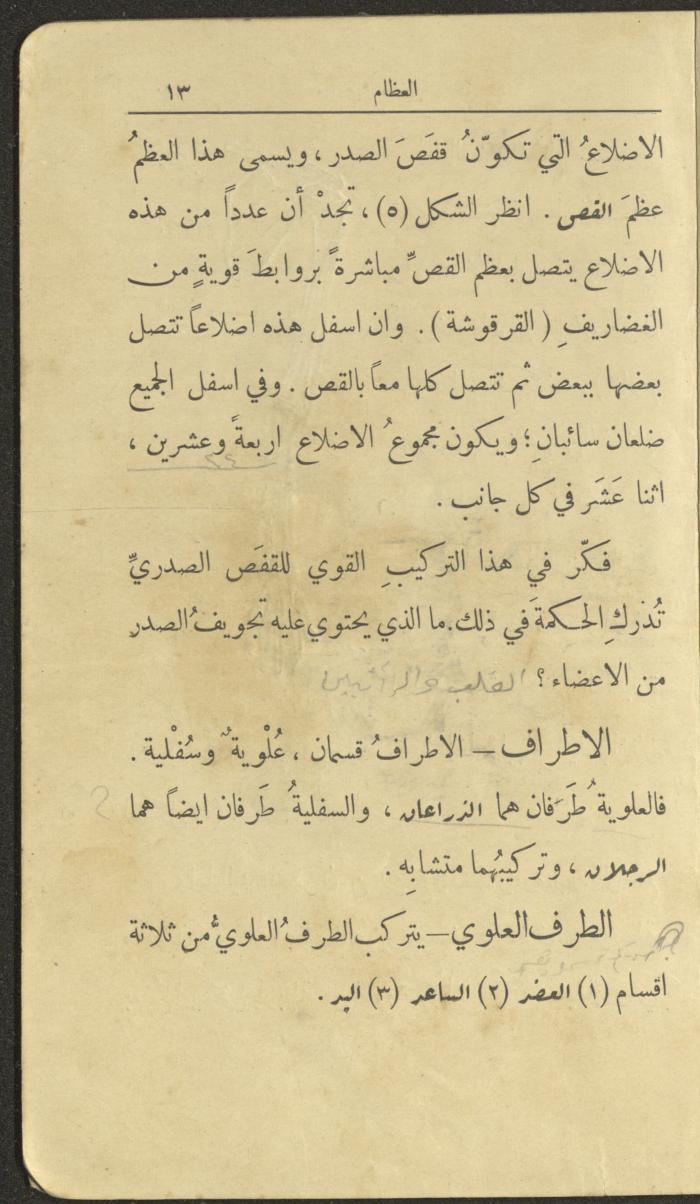 العظام ١٣
الاضلاعُ التي تكوّنُ قفَصَ الصدر، ويسمى هذا العظمُ
عظمَ القص. انظر الشكل (٥)، تجدْ أن عدداً من هذه
الاضلاع يتصل بعظم القصِّ مباشرةً بروابطَ قويةٍ من
الغضاريفِ (القرقوشة). وان اسفل هذه اضلاعاً تتصل
بعضها ببعض ثم تتصل كلها معاً بالقص. وفي اسفل الجميع
ضلعان سائبانِ؛ ويكون مجموعُ الاضلاع اربعةً وعشرين،
٢٤
اثنا عَشَر في كل جانب.
فكّر في هذا التركيبِ القوي للقفَص الصدريِّ
تُدْركِ الحكمةَ في ذلك. ما الذي يحتوي عليه تجويفُ الصدرِ
من الاعضاء؟ القلب والرئتين
الاطراف — الاطرافُ قسمان، عُلْويةٌ وسُفْلية.
فالعلويةُ طَرَفان هما الذراعان، والسفليةُ طَرفان ايضاً هما
الرجلان، وتركيبُهما متشابِه.
الطرف العلوي — يتركب الطرفُ العلويُّ من ثلاثة
اقسام (١) العضد (٢) الساعد (٣) اليد.